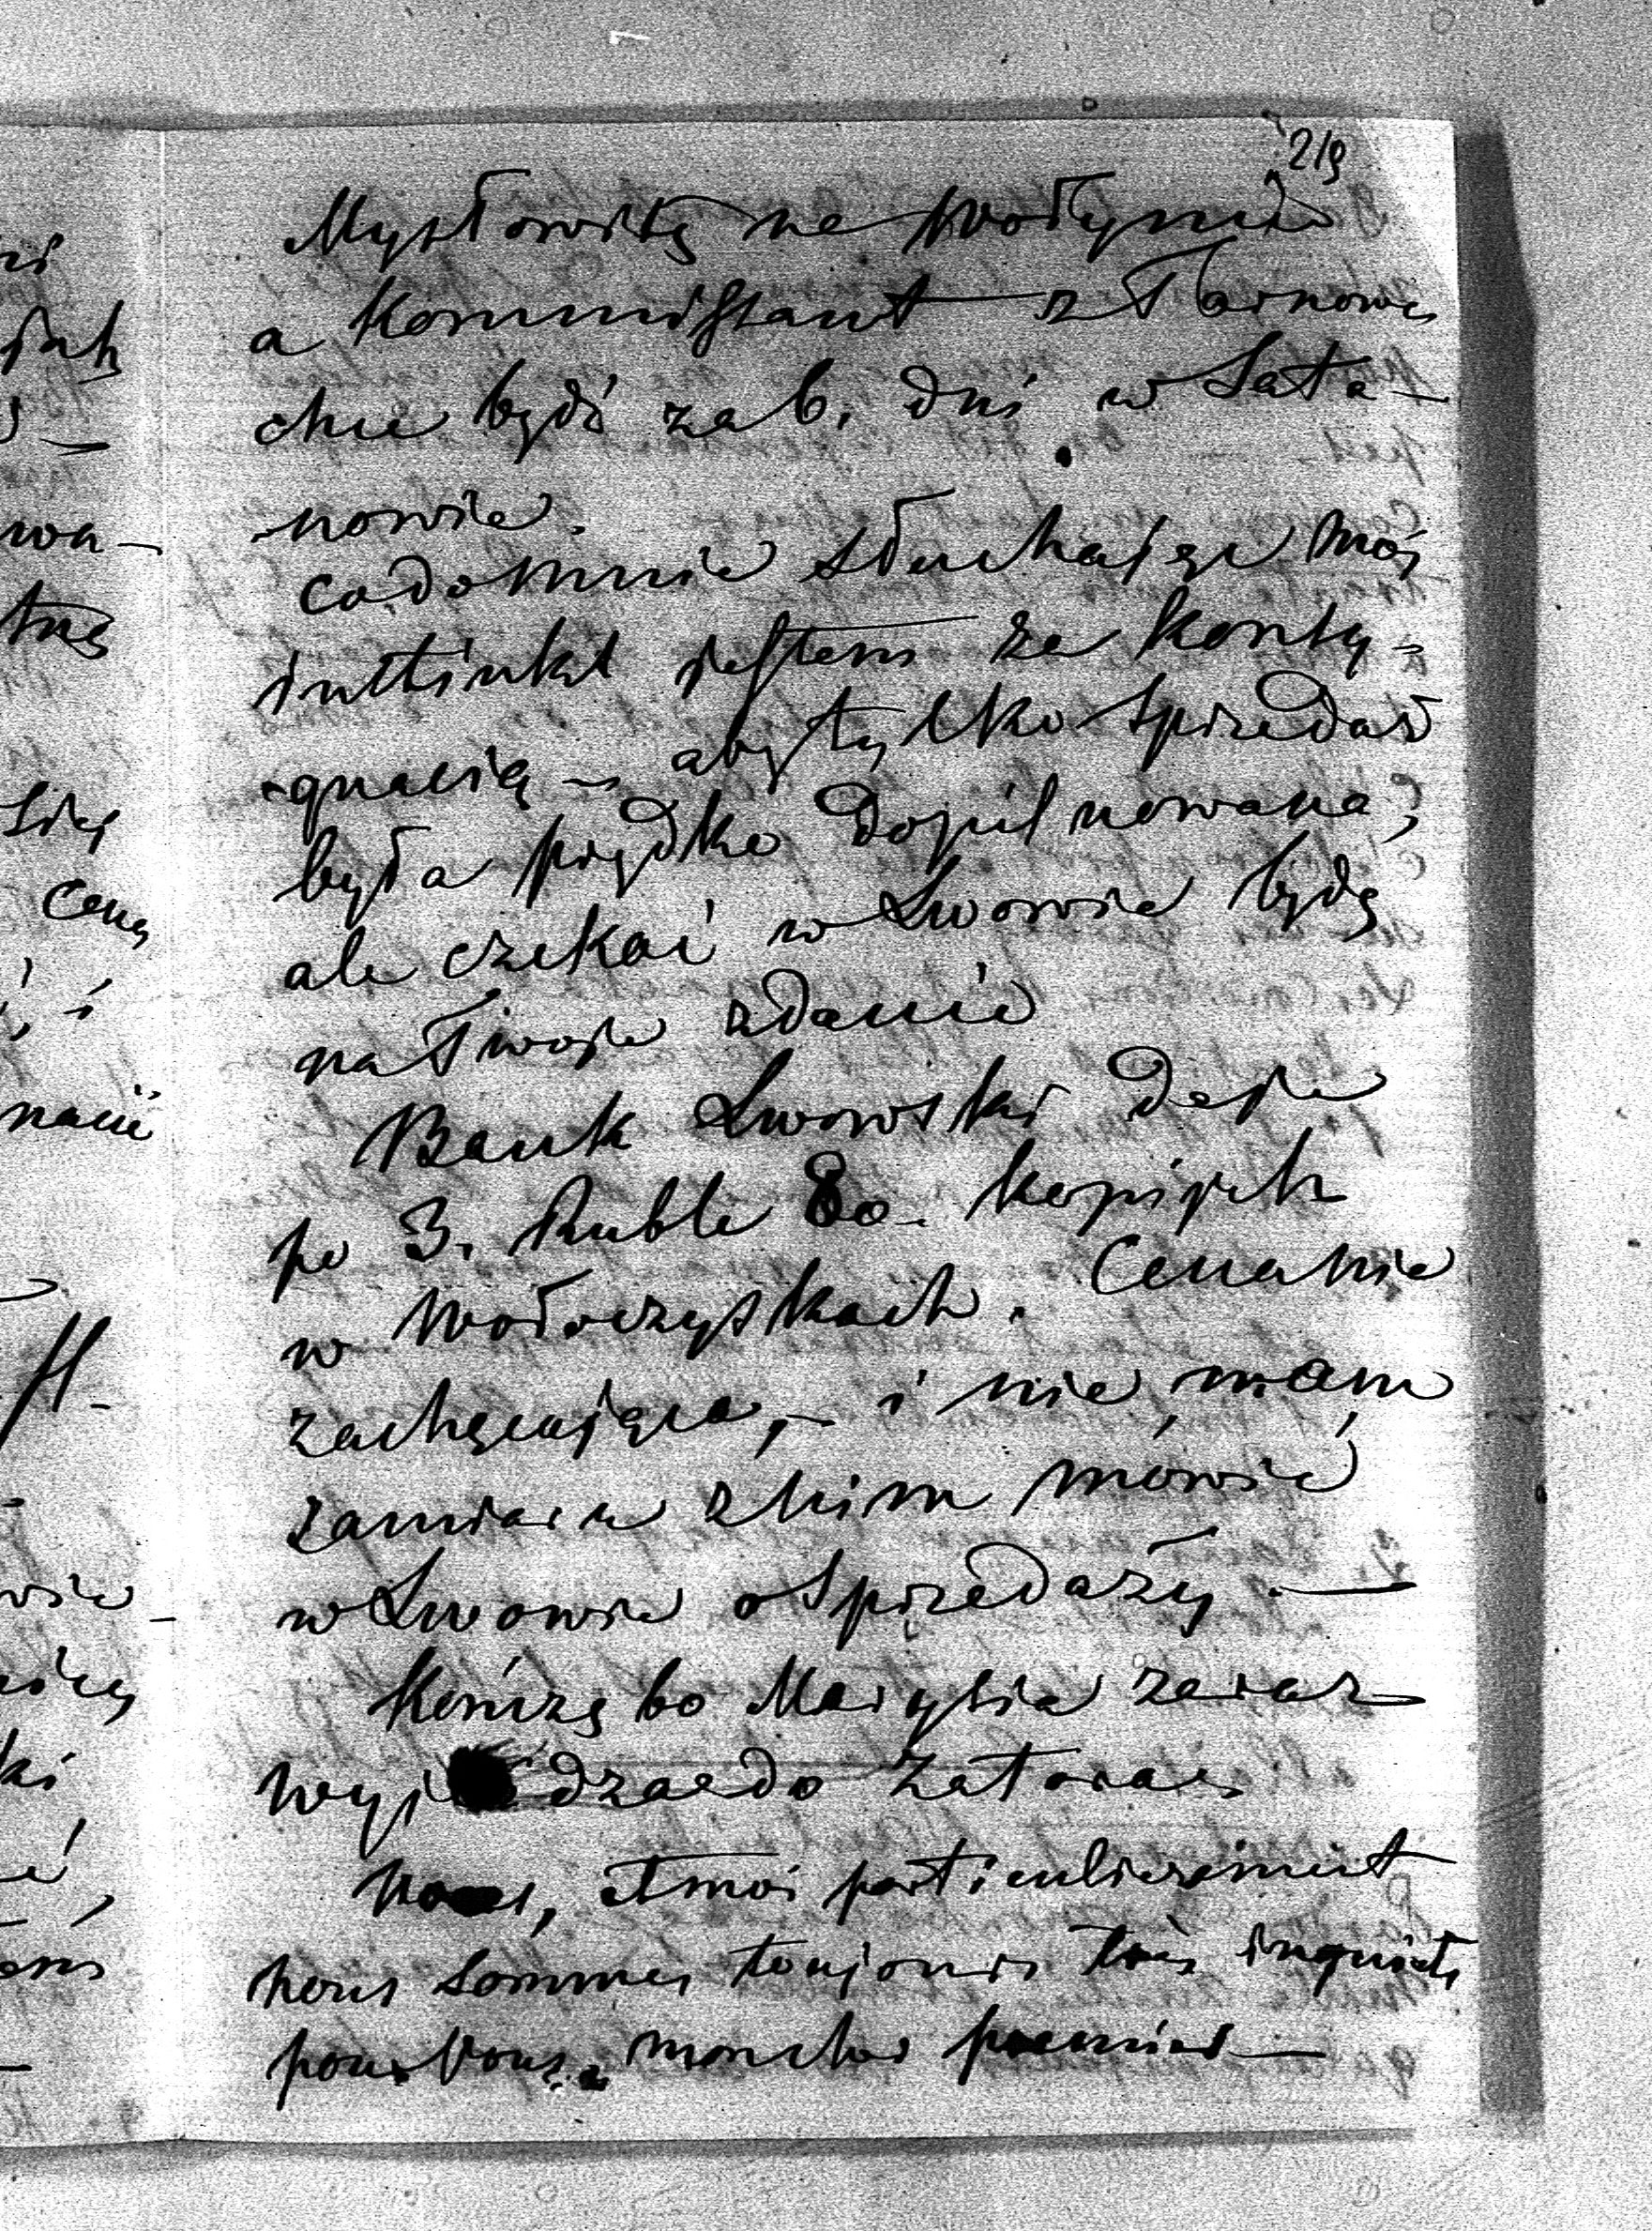 219
Mysłowitz na Wołyniu
a Kommissant z Tarnowa
chce bydź za 6. dni w Sata-
-nowie.
co do mnie słuchając mój
inttinkt jestem za konty-
-gnacią – aby tylko Sprzedaż
była prędko dopilnowana,
ale czekać w Lwowie będę
na Twoje zdanie
Bank Lwowski daje
po 3. Ruble 80. kopijek
w Wołoczyskach. Cena nie
zachęcająca, – i nie mam
zamiaru z nim mówić
w Lwowie o Sprzedaży. —
Kończę bo Marysia zaraz
wyjeżdza do Zatora
Nous, et moi particulierement
nous sommes toujours très inquiets
pour Vous. mon cher